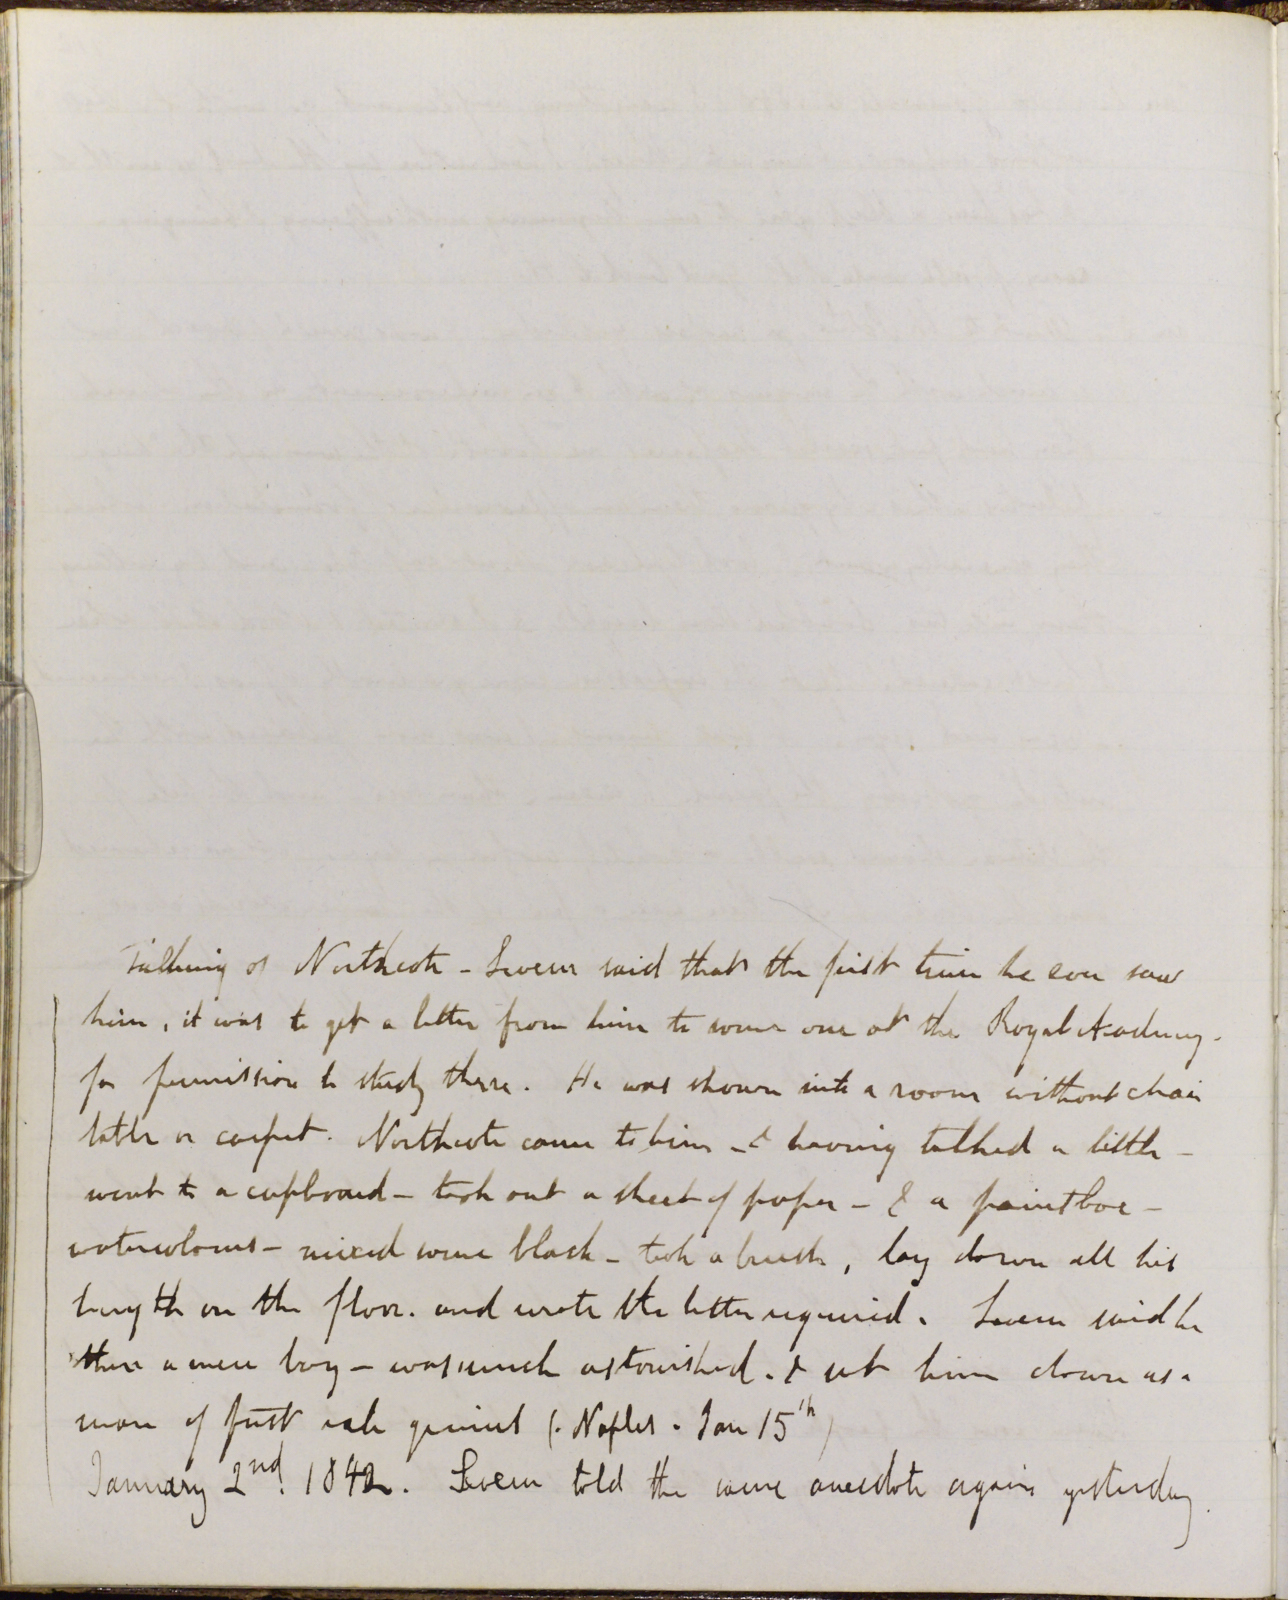 Talking of Northcote - Severn said that the first time he ever saw
him, it was to get a letter from him to some one at the Royal Academy -
for permission to study there. He was shown into a room without chair
table or carpet. Northcote came to him - & having talked a little -
went to a cupboard - took out a sheet of paper - & a paintbox -
watercolours - mixed some black - took a brush, lay down all his
length on the floor. and wrote the letter required. Severn said he
then a mere boy - was much astonished. & set him down as a
man of first rate genius (. Naples . Jan 15th)
January 2nd. 1842. Severn told the same anecdote again yesterday.